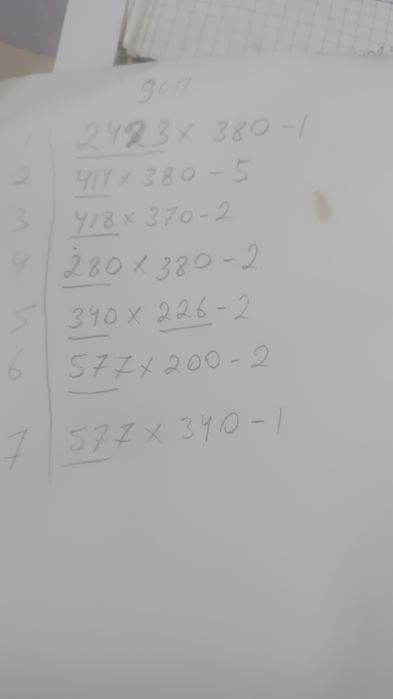 дсп
1 2423 × 380 - 1
2 414 × 380 - 5
3 418 × 370 - 2
4 280 × 380 - 2
5 340 × 226 - 2
6 577 × 200 - 2
7 577 × 340 - 1